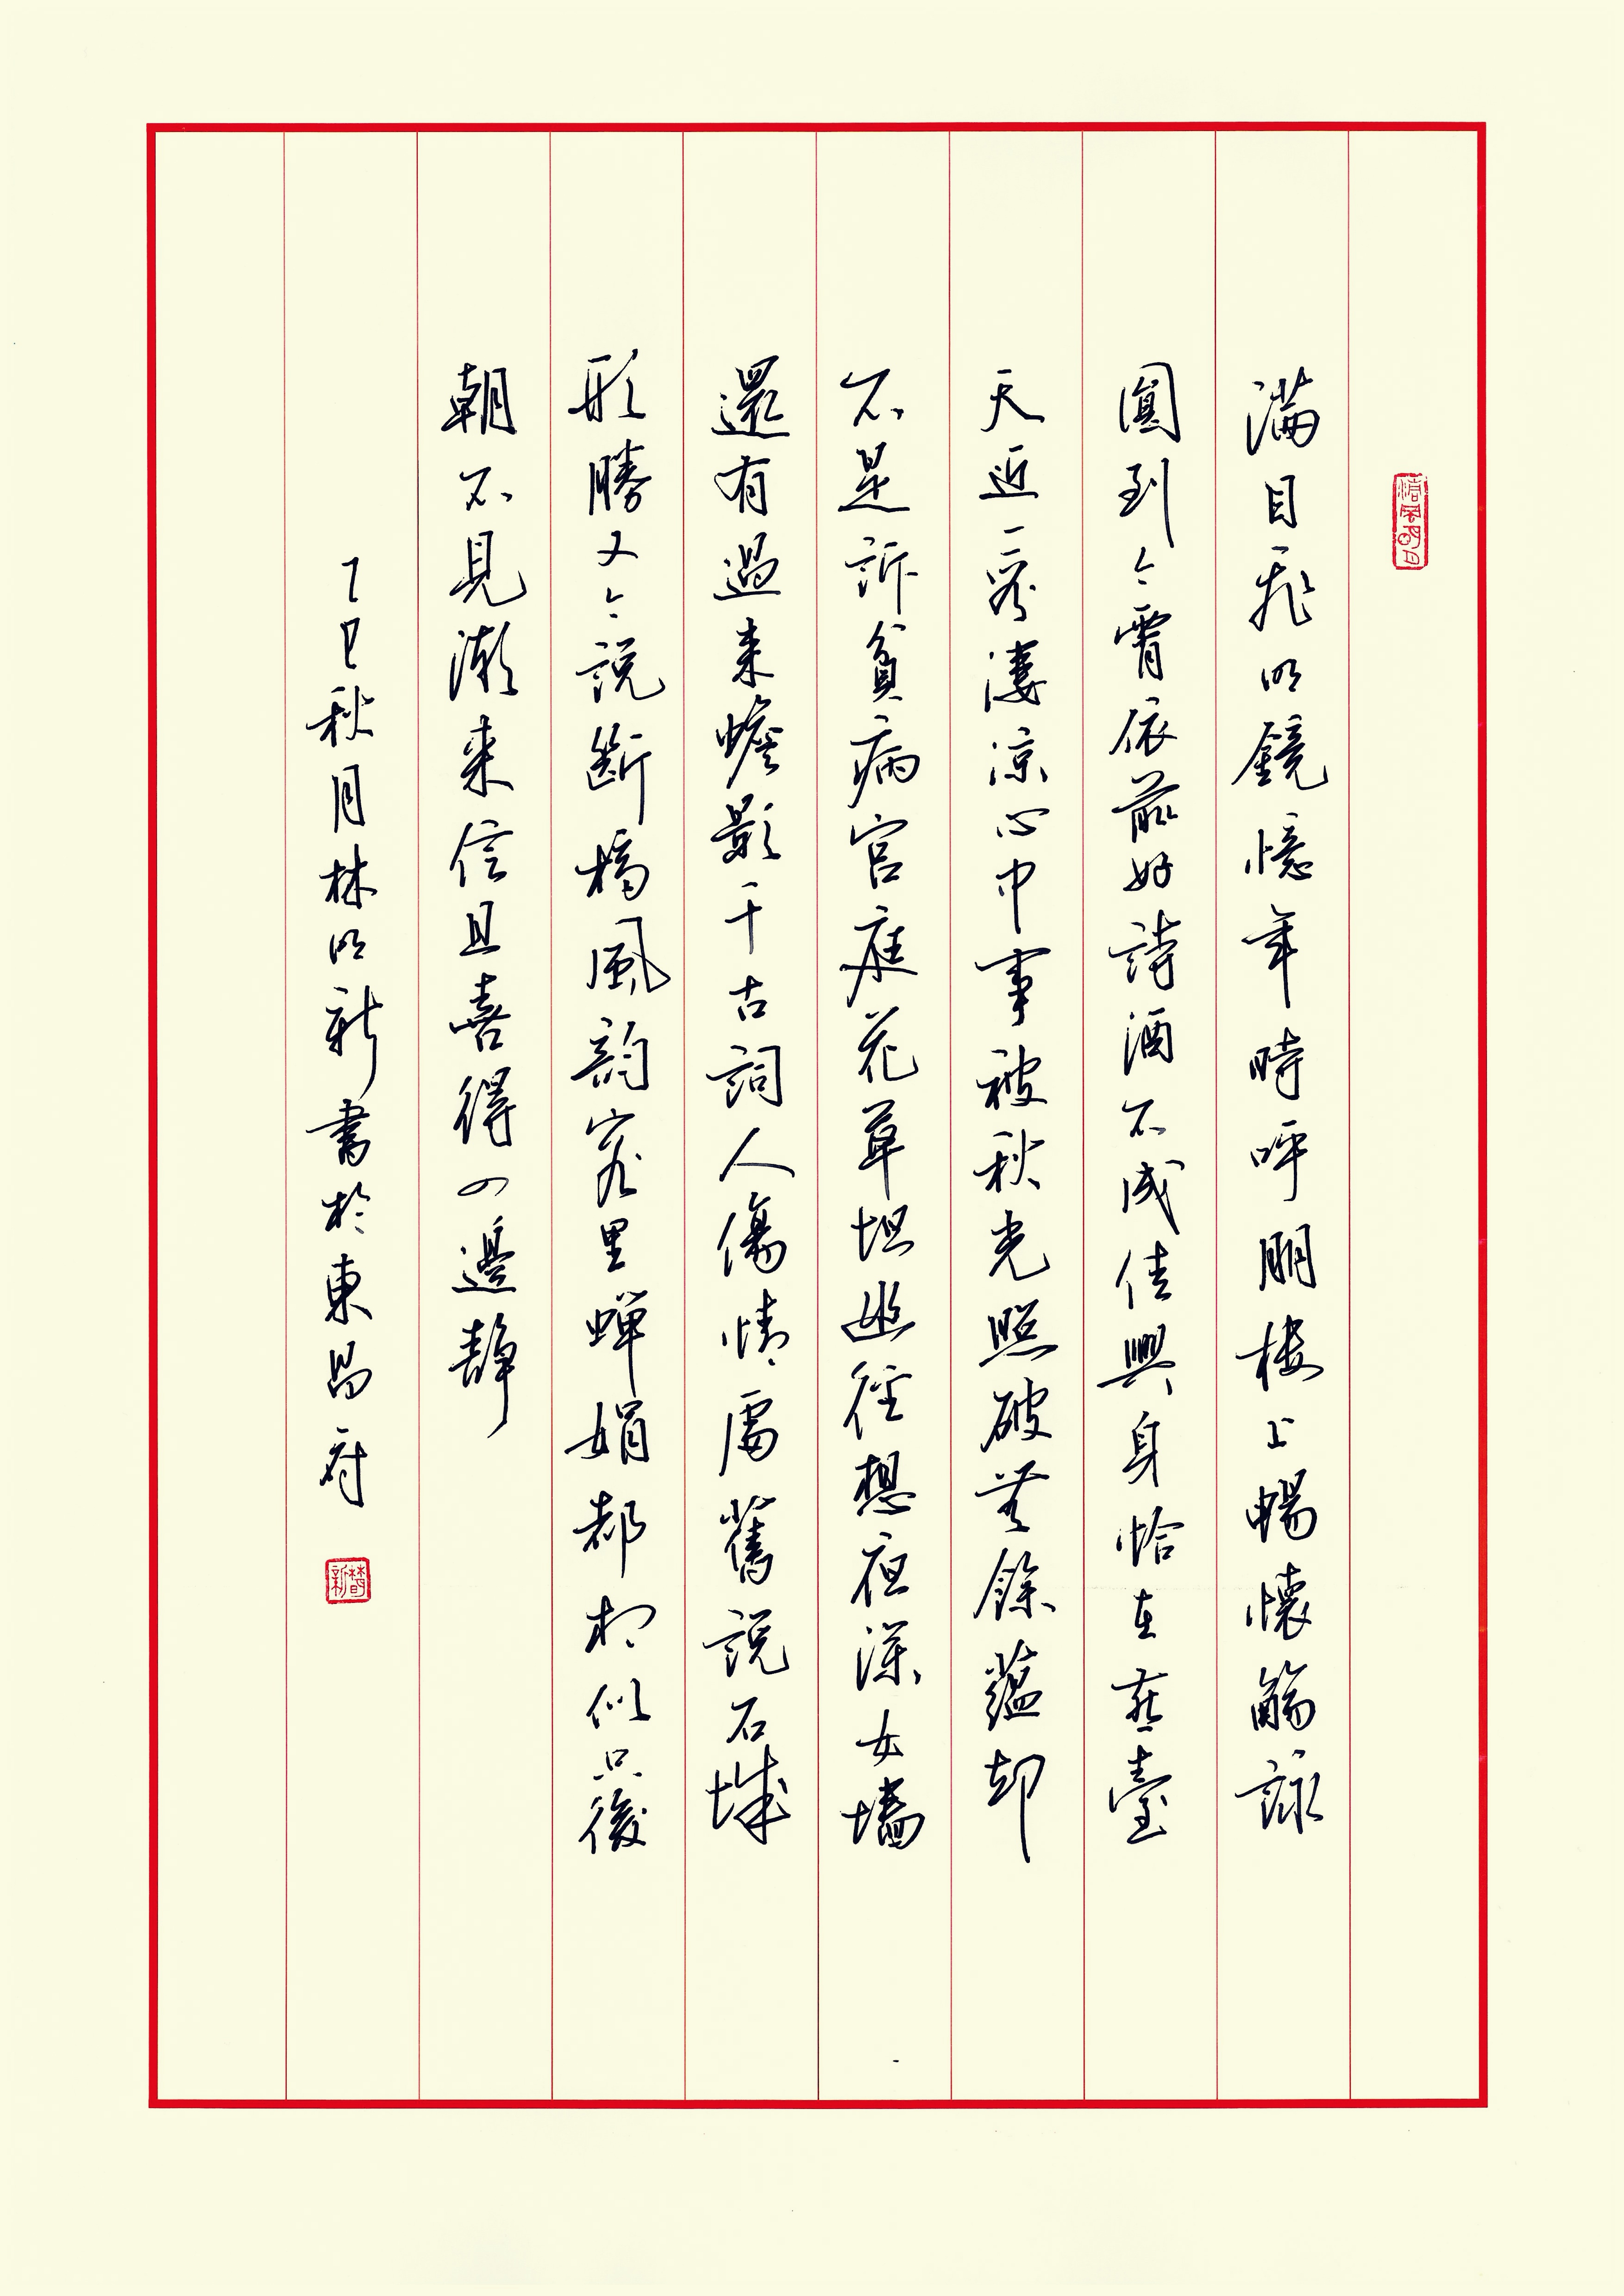 滿目飛明鏡憶年時呼朋樓上暢懷觴詠
圓到今宵依前好詩酒不成佳興身恰在燕臺
天近一段淒涼心中事被秋光照破無餘蘊却
不是訴貧病宮庭花草埋幽徑想夜深女墻
還有過來蟾影千古詞人傷情處舊說石城
形勝又今說斷橋風韵客里蟬娟都相似只後
朝不見潮來信且喜得四邊靜
乙巳秋月林明新書於東昌府